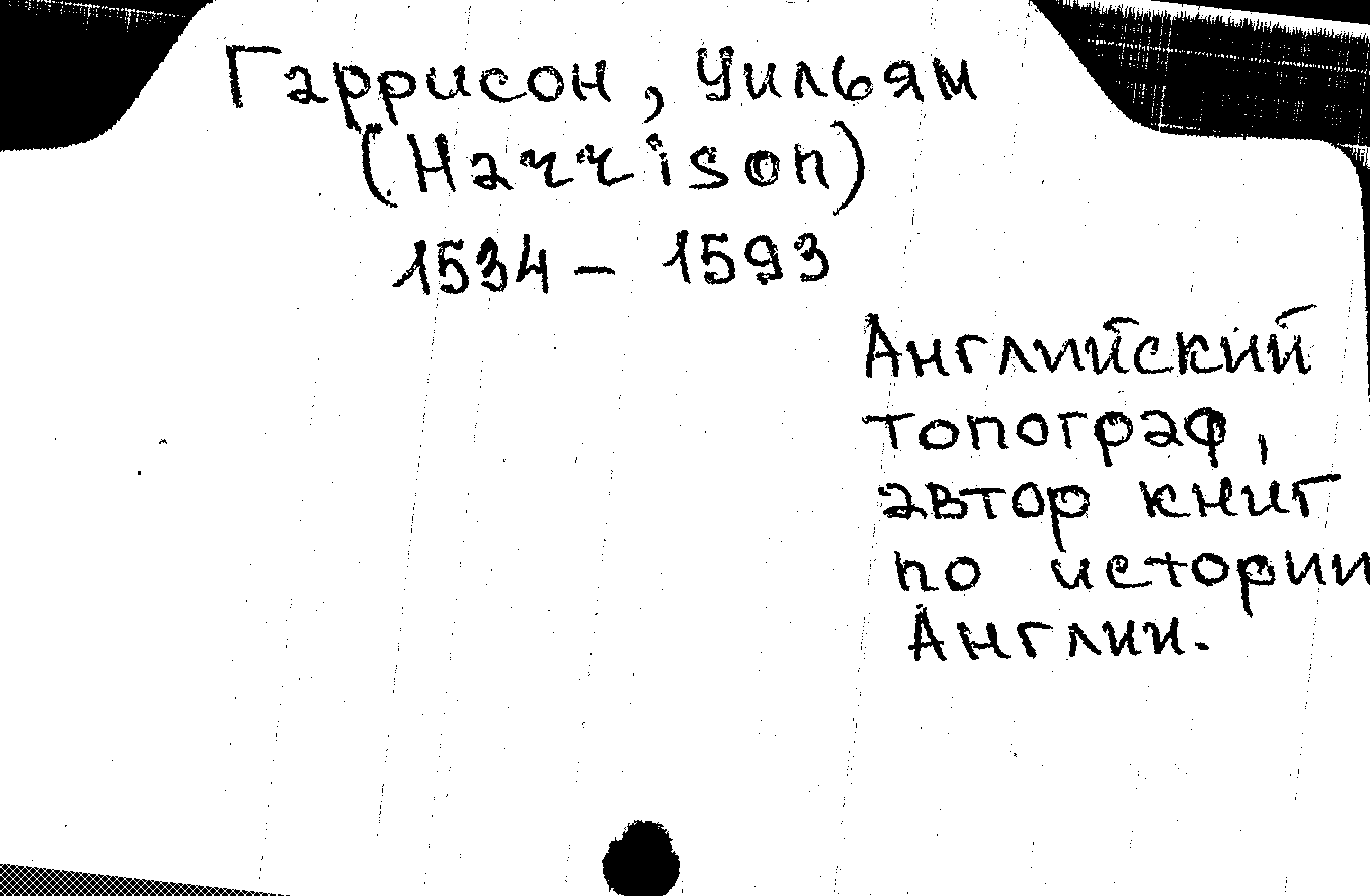 Гаррисон, Уильям
(Harrison)
1534 – 1593
Английский
топограф,
автор книг
по истории
Англии.